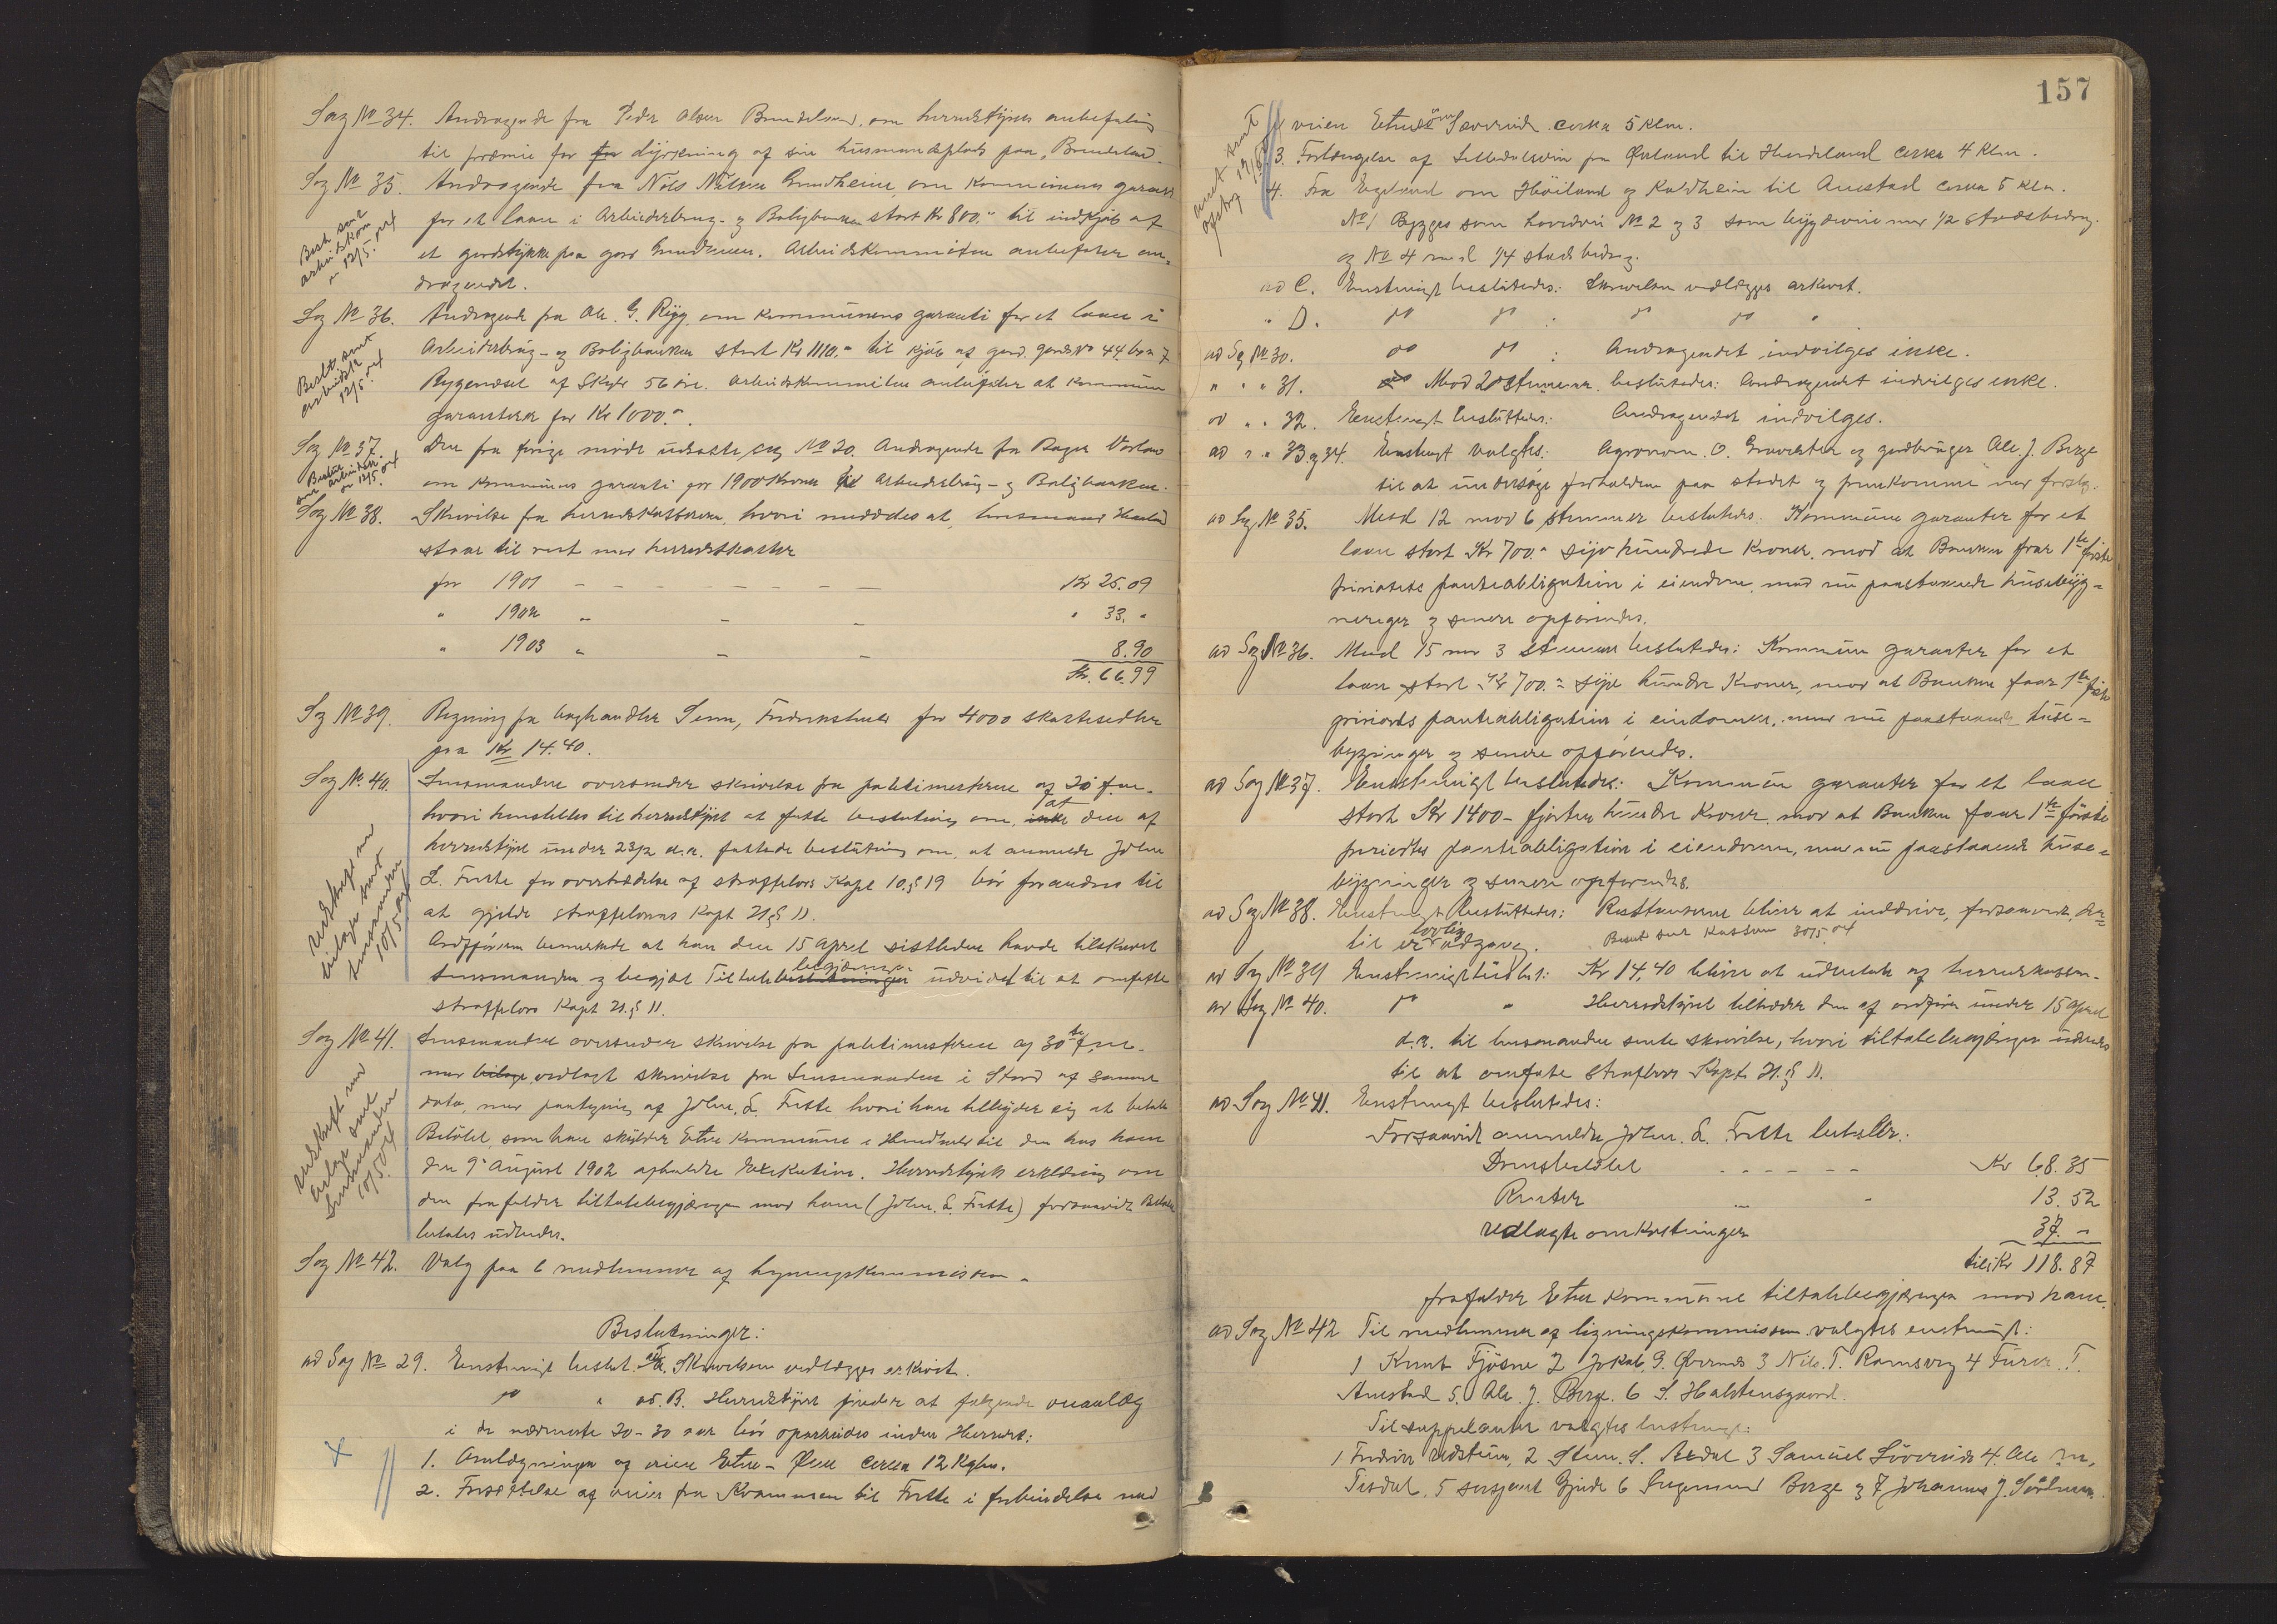 Sag No 34. Andragende fra Peder Olsen Brendeland, om herredstyrets anbefaling
til præmie for for dyrkning af sin husmandsplads paa Brendeland.
Sag No 35. Andragende fra Nils Nilsen Grindheim, om kommunens garanti
for et laan i Arbeiderbrug- og Boligbanken stort Kr 800.- til indkjøb af
et jordstykke paa gaard Grindheim. Arbeidskommiteen anbefaler an-
dragendet.
Besk. sent
arbeidskom
12/5.
Sag No 36. Andragende fra Ole G. Rygg, om kommunens garanti for et laan i
Arbeiderbrug- og Boligbanken stort Kr 1110.- til kjøb af gaard gards No 44 brn 7
Rygenæset af Skyld 56 øre. Arbeidskommiteen anbefaler at kommunen
garanterer for Kr 1000.-.
Besk. sent
arbeidsk
12/5.
Sag No 37. Den fra forige møde udsatte sag No 20. Andragende fra
om kommunens garanti for 1900 kroner til Arbeiderbrug- og Boligbanken.
12/5.
Sag No 38. Skrivelse fra herredskassereren, hvori meddeles at
staar til rest med herredskatter
for 1901 - - - - - - - Kr 25.09
" 1902 " - - " 33. "
" 1903 " - - 8.90
Kr. 66.99
Sag No 39. Regning fra boghandler Senn, Fredrikshald for 4000 skattesedler
paa Kr 14.40.
Sag No 40. Lensmanden oversender skrivelse fra politimesteren af 20 f.m.
hvori henstilles til herredstyret at fatte beslutning om, at den af
herredstyret under 23/2 d.a. fattede beslutning om, at anmelde John
L. Fritte for overtrædelse af straffelovs Kapt 10 § 19 bør forandres til
at gjelde straffelovens Kapt 21 § 11.
Ordføreren bemerkede at han den 15 april sistleden havde tilskrevet
lensmanden og begjært Tiltalebegjæringen udvidet til at omfatte
straffelovs Kapt 21 § 11.
Udskrift med
bilage sent
lensmanden
10/5
Sag No 41. Lensmanden oversender skrivelse fra politimesteren af 30te f.m.
med bilage vedlagt skrivelse fra Lensmanden i Stord af samme
dato, med paategning af John L. Fritte hvori han tilbyder sig at betale
Beløbet som han skylder Etne kommune i Henhold til den hos ham
den 9' August 1902 afholdte Exekution. Herredstyrets erklæring om
den frafalder tiltalebegjæringen mod ham (John L. Fritte) forsaavidt Beløbet
betales udbedes.
Udskrift med
bilage sent
Lensmanden
10/5
Sag No 42. Valg paa 6 medlemmer af ligningskommissionen.
Beslutninger:
ad Sag No 29. Enstemmigt beslut. ad A. Skrivelsen vedlægges arkivet.
do " ad. B. Herredstyret finder at følgende veianlæg
i de nærmeste 20-30 aar bør oparbeides inden Herredet:
1. Omlægningen af veien Etne - Ølen cirka 12 Kglm.
2. Fortsættelse af veien fra Kvammen til Fritte i forbindelse med
157
veien Etne om Sævereide cirka 5 Klm.
3. Forlængelse af Litledalsvein fra Øvland til Hardeland cirka 4 Klm.
4. Fra Egeland om Høiland og Kaldheim til Austad cirka 5 Klm.
No 1 Bygges som hovedvei No 2 og 3 som bygdeveie med 1/2 statsbidrag.
og No 4 med 1/4 statsbidrag.
ad C. Enstemmigt beslutedes: Skrivelsen vedlægges arkivet.
" D. do do : do do "
ad Sag No 30. do do : Andragendet indvilges ikke.
" " " 31. Mod 2 stemmer beslutedes: Andragendet indvilges ikke.
ad " " 32. Enstemmigt beslutedes: Andragendet indvilges.
ad " " 33 og 34. Enstemt valgtes: Agronom O. Graverter og gardbruger Ole J. Berge
til at undersøge forholdene paa stedet og fremkomme med forslag.
ad Sag No 35. Med 12 mod 6 stemmer beslutedes: Kommunen garanterer for et
laan stort Kr 700.- syv hundrede kroner, mod at Banken faar 1ste første
prioritets panteobligation i eiendommen, med nu paastaaende husebyg-
ninger og senere opførendes.
ad Sag No 36. Med 15 mod 3 stemmer beslutedes: Kommunen garanterer for et
laan stort Kr 700.- syv hundre Kroner, mod at Banken faar 1ste første
prioritets panteobligation i eiendommen, med nu paastaaende huse-
bygninger og senere opførendes.
ad Sag No 37. Enstemmigt beslutedes: Kommunen garanterer for et laan
stort Kr 1400 - fjorten hundre Kroner, mod at Banken faar 1ste første
prioritets panteobligation i eiendommen, med nu paastaaende huse-
bygninger og senere opførendes.
ad Sag No 38. Enstemmigt beslutedes: Restanserne bliver at inddrive, forsaavidt der
til er lovlig adgang. Besked sent Kassereren 30/5
ad Sag No 39 Enstemmigt beslut: Kr 14.40 bliver at udbetale af herredskassen.
ad Sag No 40. do " Herredstyret tiltræder den af ordfører under 15 April
d.a. til lensmanden sente skrivelse, hvori tiltalebegjæringen udvides
til at omfatte straffelovs Kapt. 21 § 11.
ad Sag No 41. Enstemmigt beslutedes:
Forsaavidt anmeldte John L. Fritte betaler:
Domsbeløbet - - - - - - Kr 68.35
Renter - - 13.52
Idelagte omkostninger 37. -
tils. Kr 118.87
frafalder Etne kommune tiltalebegjæringen mod ham.
ad Sag No 42 Til medlemmer af ligningskommissionen valgtes enstemmigt:
1 Knut Fjøsne 2 Jakob G. Øvernes 3 Nils T. Ramsvig 4 T.
Austad 5. Ole J. Berge 6 S. Halstensgaard.
Til suppleanter valgtes enstemmigt:
1 Fredrik 2 Sten S. Axdal 3 Samuel Sævereide 4. Ole M.
Tesdal. 5 sersjant Gjerde 6 Ingemund Berge og 7 Johannes J. Sørheim.